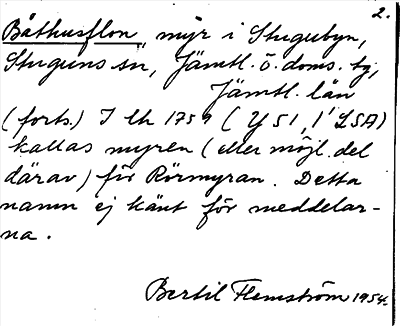 2.
Båthusflon myr i Stugubyn,
Stuguns sn, Jämtl. ö. doms. tg,
Jämtl. län
(forts.) I lh 1759 (Y 51, 1' LSA)
kallas myren (eller möjl. del
därav) för Rörmyran. Detta
namn ej känt för meddelar-
na.
Bertil Flemström 1954.